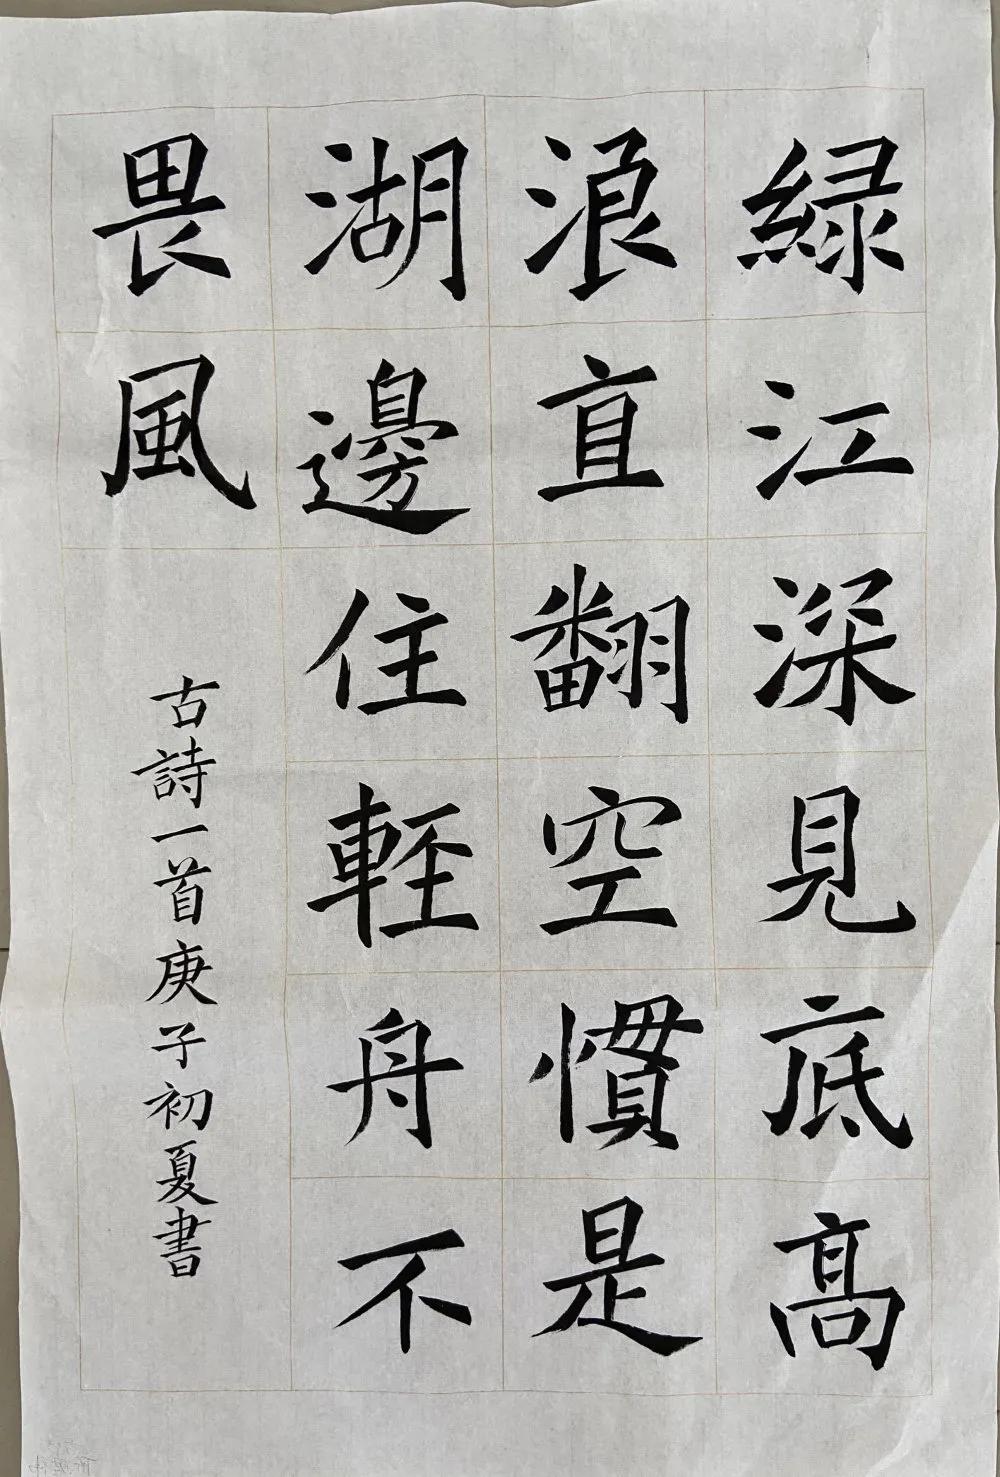 緑江深見底高
浪直翻空慣是
湖邊住輕舟不
畏風
古詩一首庚子初夏書